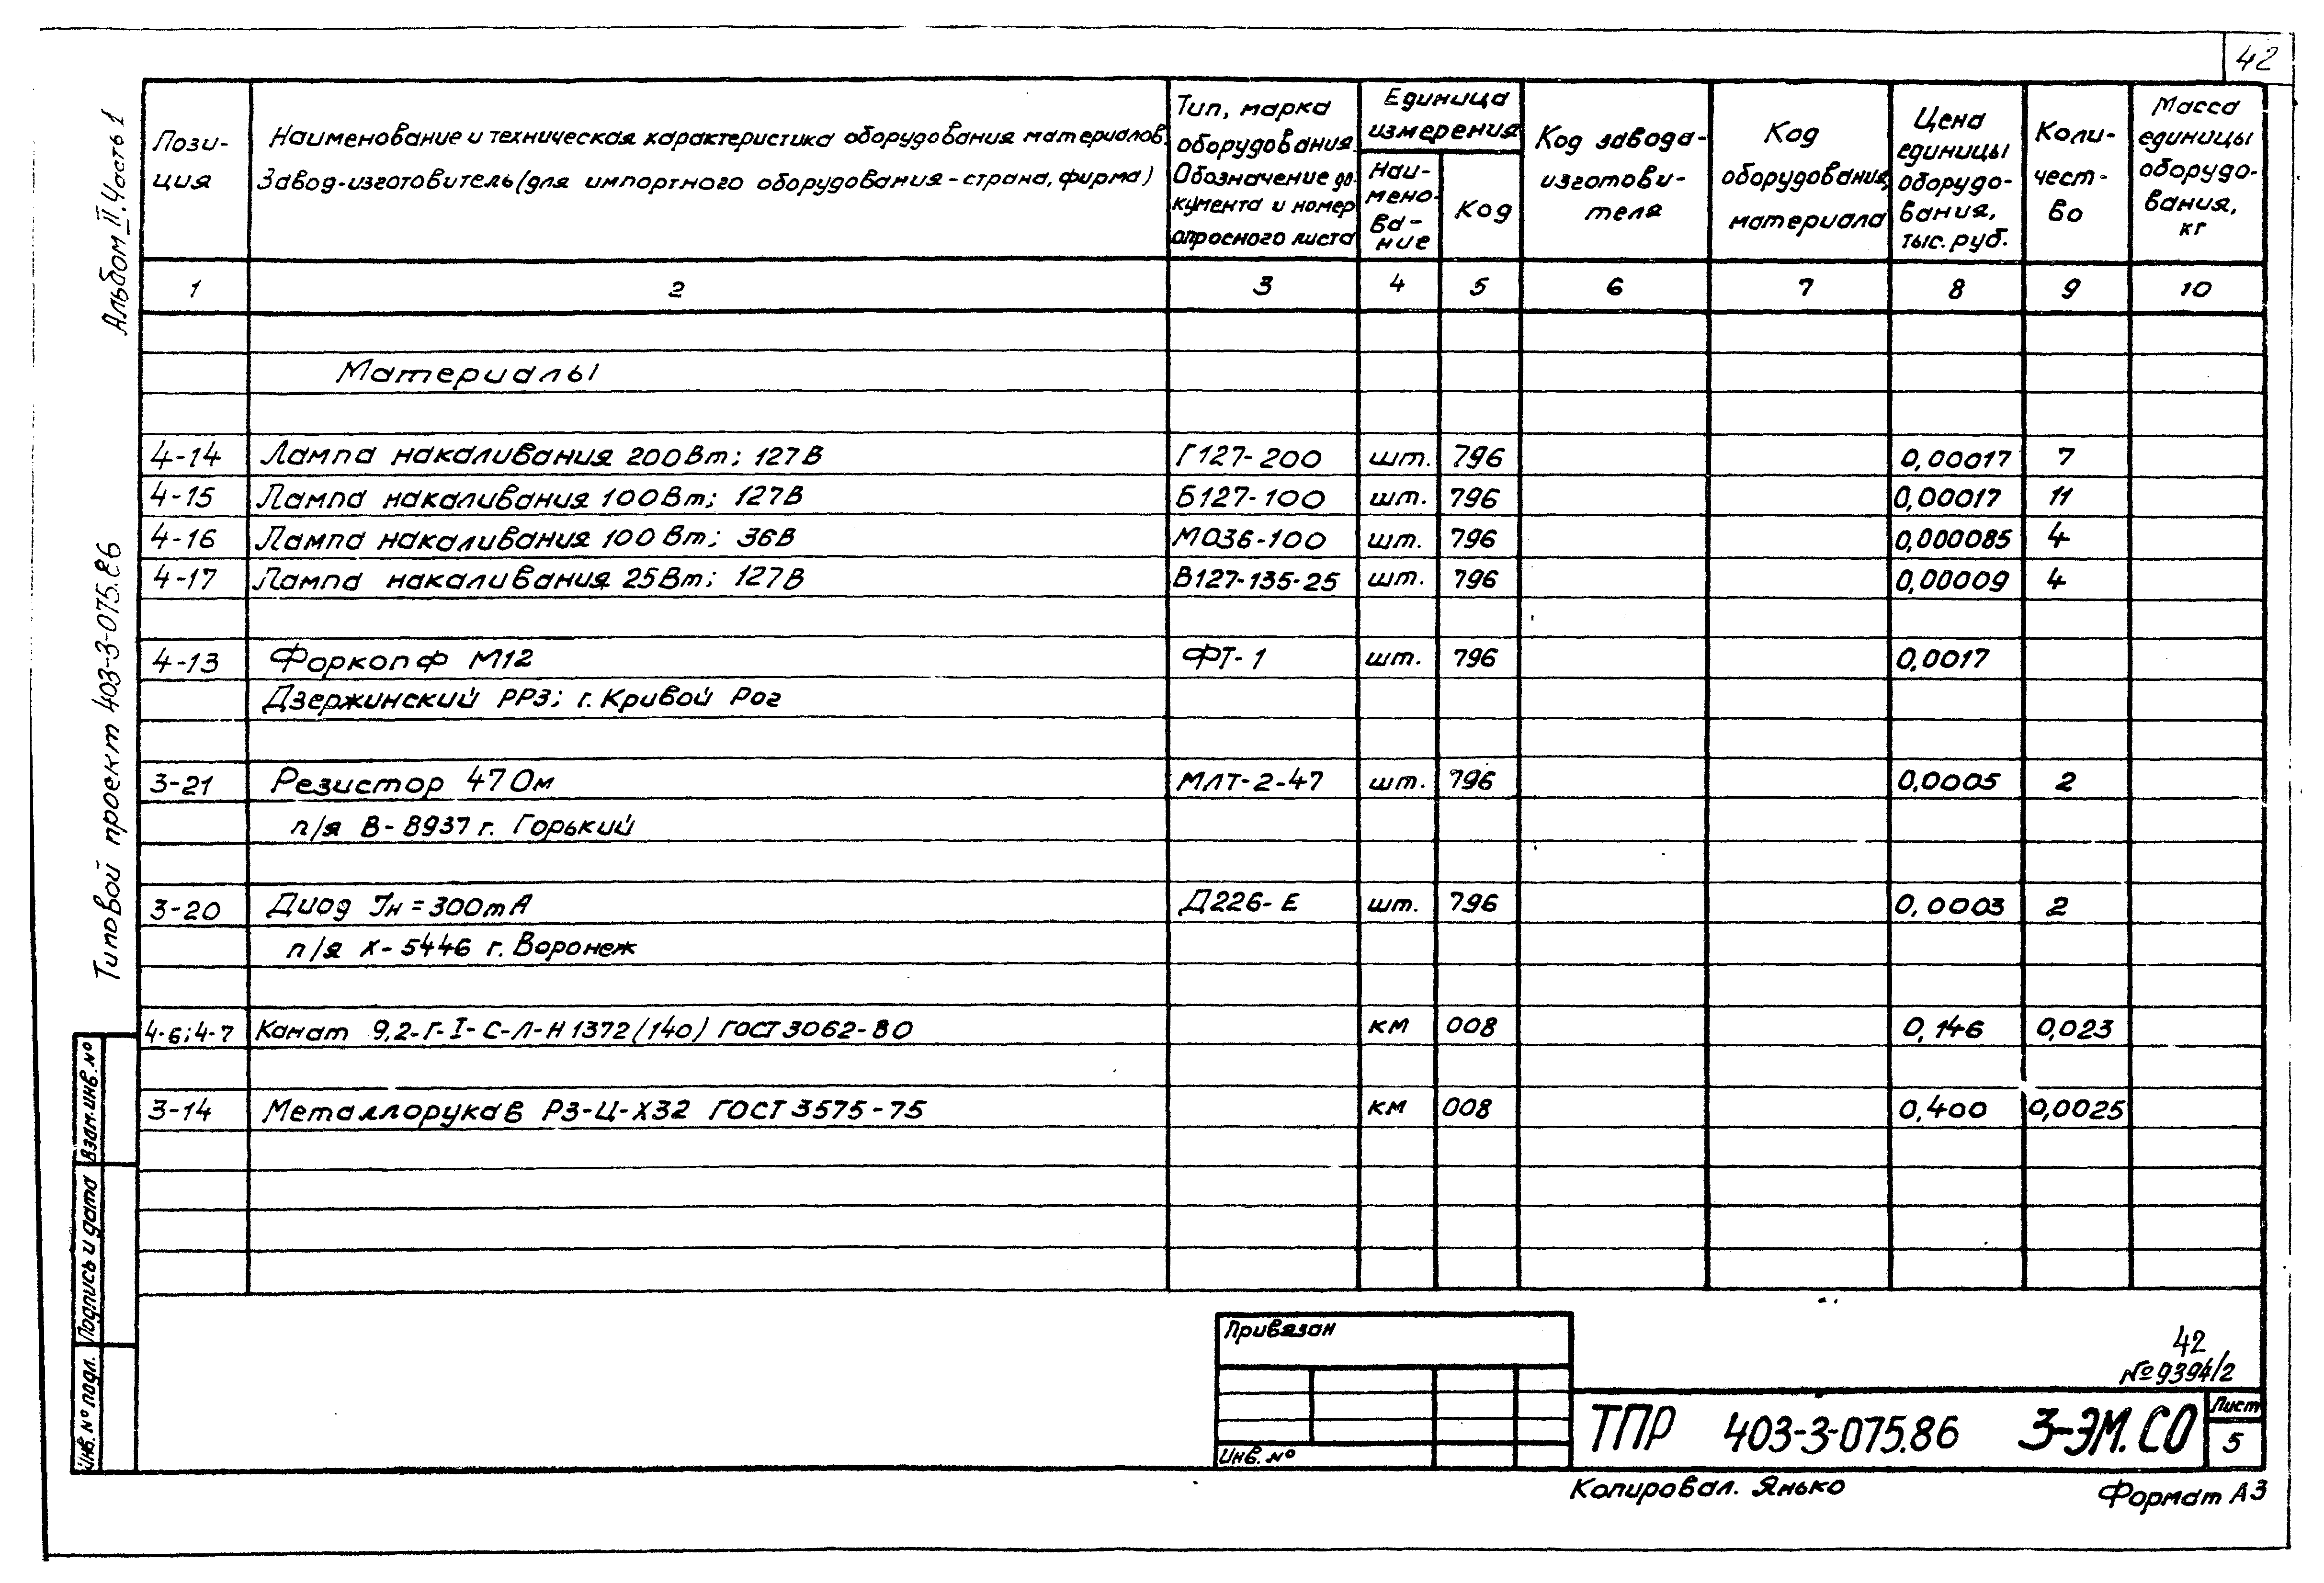 42
Альбом II. Часть 1
Типовой проект 403-3-075.86
Пози-
ция
Наименование и техническая характеристика оборудования материалов.
Завод-изготовитель (для импортного оборудования - страна, фирма)
Тип, марка
оборудования.
Обозначение до-
кумента и номер
опросного листа
Единица
измерения
Наи-
мено-
ва-
ние
Код
Код завода-
изготови-
теля
Код
оборудования,
материала
Цена
единицы
оборудо-
вания,
тыс. руб.
Коли-
чест-
во
Масса
единицы
оборудо-
вания,
кг
1 2 3 4 5 6 7 8 9 10
Материалы
4-14 Лампа накаливания 200Вт; 127В Г127-200 шт. 796 0,00017 7
4-15 Лампа накаливания 100Вт; 127В Б127-100 шт. 796 0,00017 11
4-16 Лампа накаливания 100Вт; 36В МО36-100 шт. 796 0,000085 4
4-17 Лампа накаливания 25Вт; 127В В127-135-25 шт. 796 0,00009 4
4-13 Форкопф М12 ФТ-1 шт. 796 0,0017
Дзержинский РРЗ; г. Кривой Рог
3-21 Резистор 47 Ом МЛТ-2-47 шт. 796 0,0005 2
п/я В-8937 г. Горький
3-20 Диод Iн=300mA Д226-Е шт. 796 0,0003 2
п/я Х-5446 г. Воронеж
4-6; 4-7 Канат 9,2-Г-I-С-Л-Н 1372 (140) ГОСТ 3062-80 км 008 0,146 0,023
3-14 Металлорукав РЗ-Ц-Х32 ГОСТ 3575-75 км 008 0,400 0,0025
Взам. инв. №
Подпись и дата
Инв. № подл.
Привязан
Инв. №
42
№ 9394/2
ТПР 403-3-075.86 3-ЭМ.СО
Лист
5
Копировал. Янько
Формат А3